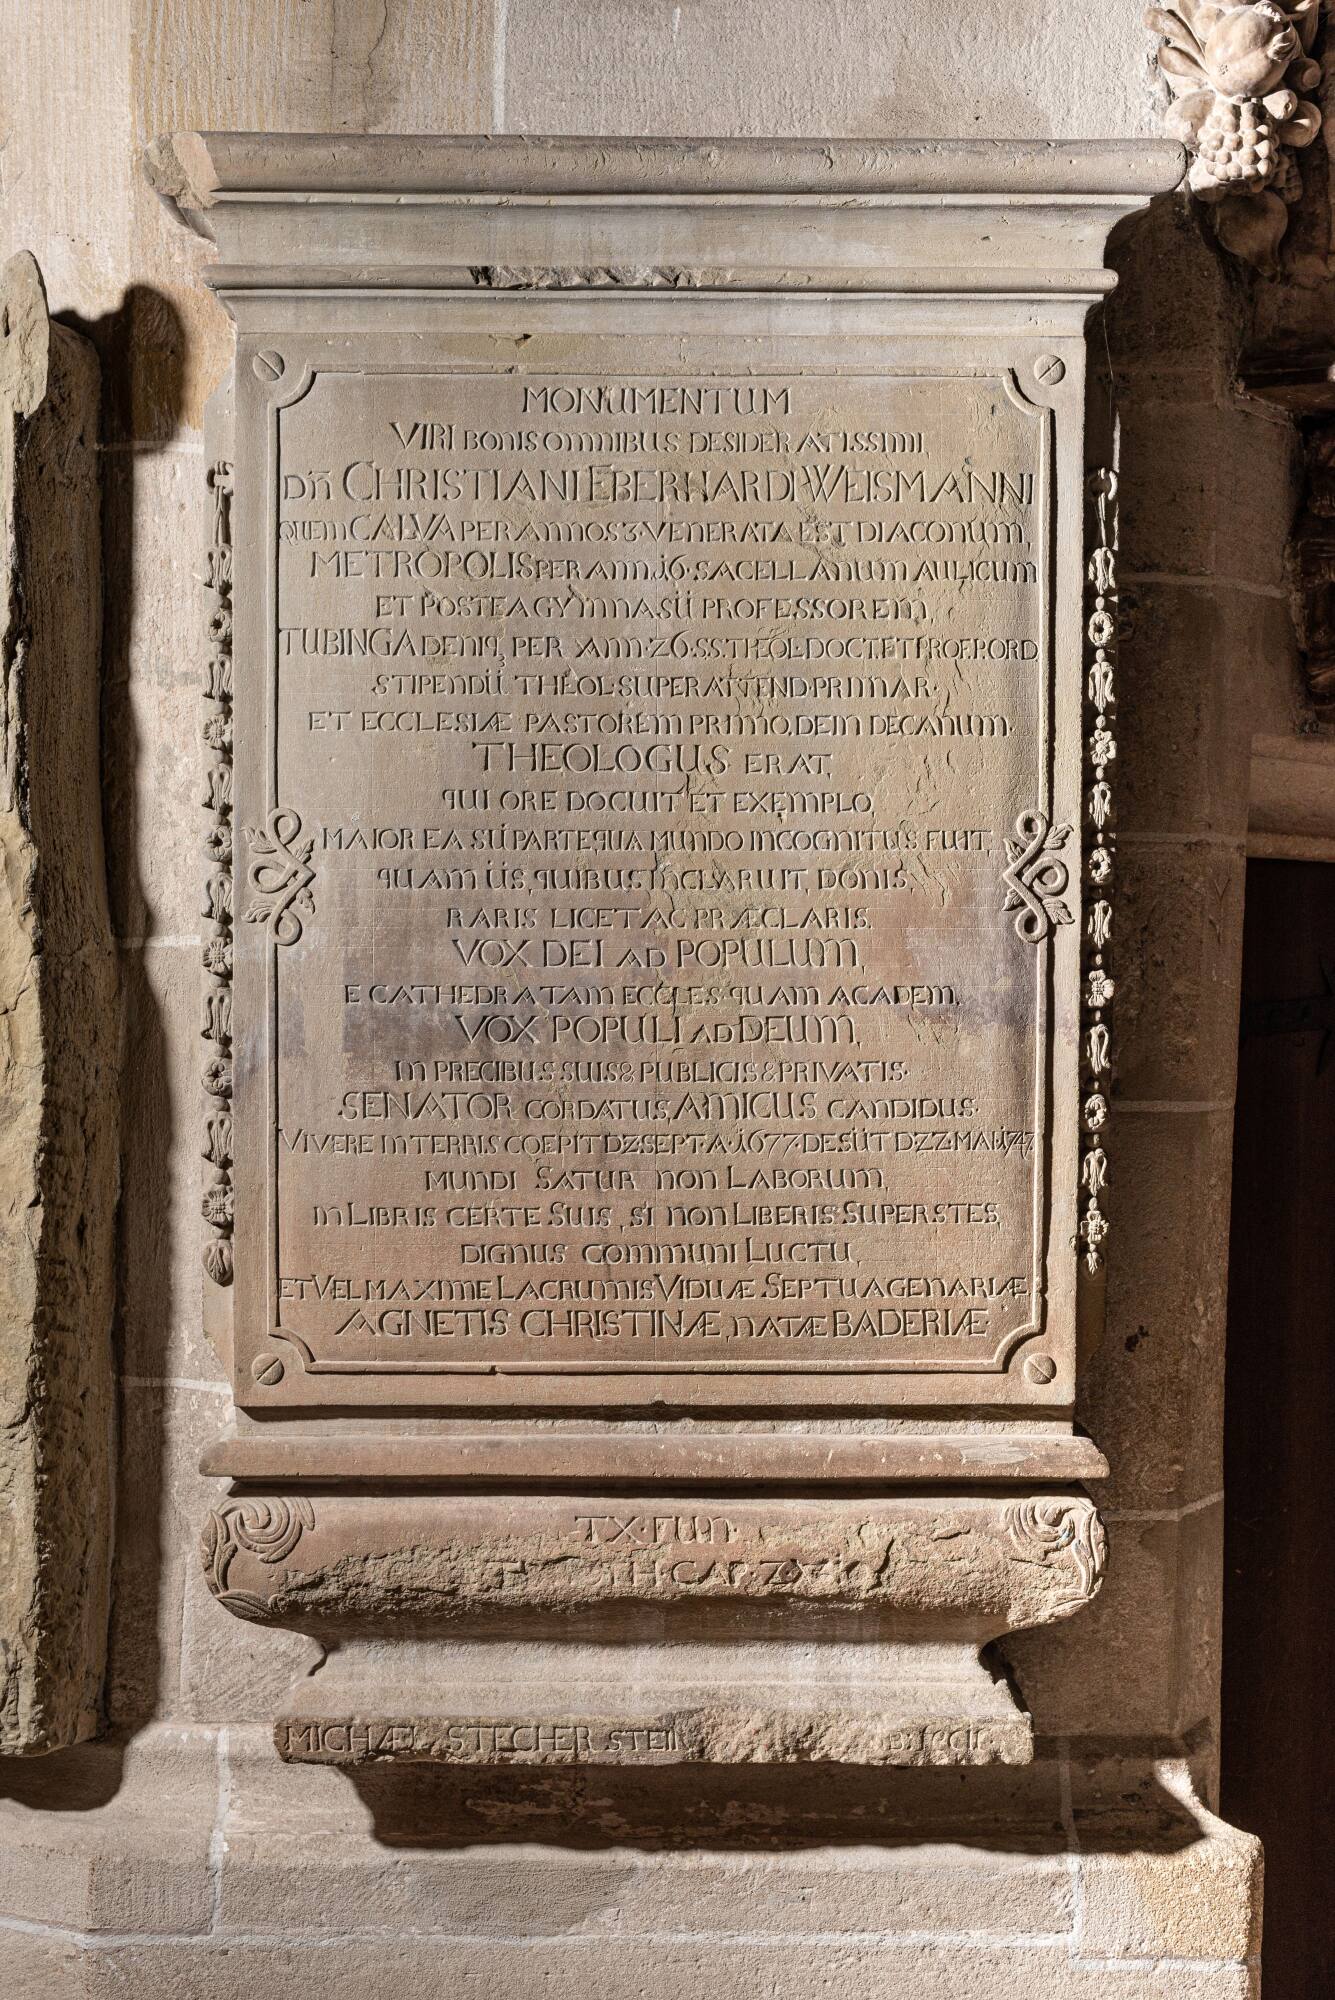 MONUMENTUM
VIRI BONIS OMNIBUS DESIDERATISSIMI,
DÑ CHRISTIANI EBERHARDI WEISMANNI
QUEM CALVA PER ANNOS 3. VENERATA EST DIACONUM,
METROPOLIS PER ANN. 16. SACELLANUM AULICUM
ET POSTEA GYMNASII PROFESSOREM,
TUBINGA DENIQ3 PER ANN. 26. S.S. THEOL. DOCT. ET PROF. P. ORD.
STIPENDII THEOL. SUPERATTEND. PRIMAR.
ET ECCLESIÆ PASTOREM PRIMO, DEIN DECANUM.
THEOLOGUS ERAT,
QUI ORE DOCUIT ET EXEMPLO,
MAIOR EA SUI PARTE QUA MUNDO INCOGNITUS FUIT,
QUAM IIS, QUIBUS INCLARUIT, DONIS,
RARIS LICET AC PRÆCLARIS.
VOX DEI AD POPULUM,
E CATHEDRA TAM ECCLES. QUAM ACADEM,
VOX POPULI AD DEUM,
IN PRECIBUS SUIS & PUBLICIS & PRIVATIS.
SENATOR CORDATUS, AMICUS CANDIDUS.
VIVERE IN TERRIS COEPIT D 2. SEPT. A. 1677. DESIIT D 22. MAI. 1747.
MUNDI SATUR NON LABORUM,
IN LIBRIS CERTE SUIS, SI NON LIBERIS SUPERSTES,
DIGNUS COMMUNI LUCTU,
ET VEL MAXIME LACRUMIS VIDUÆ SEPTUAGENARIÆ
AGNETIS CHRISTINÆ, NATÆ BADERIÆ.
TX. FUN.
TH. CAP. 2.
MICHÆL STECHER STEIN
B: FECIT.